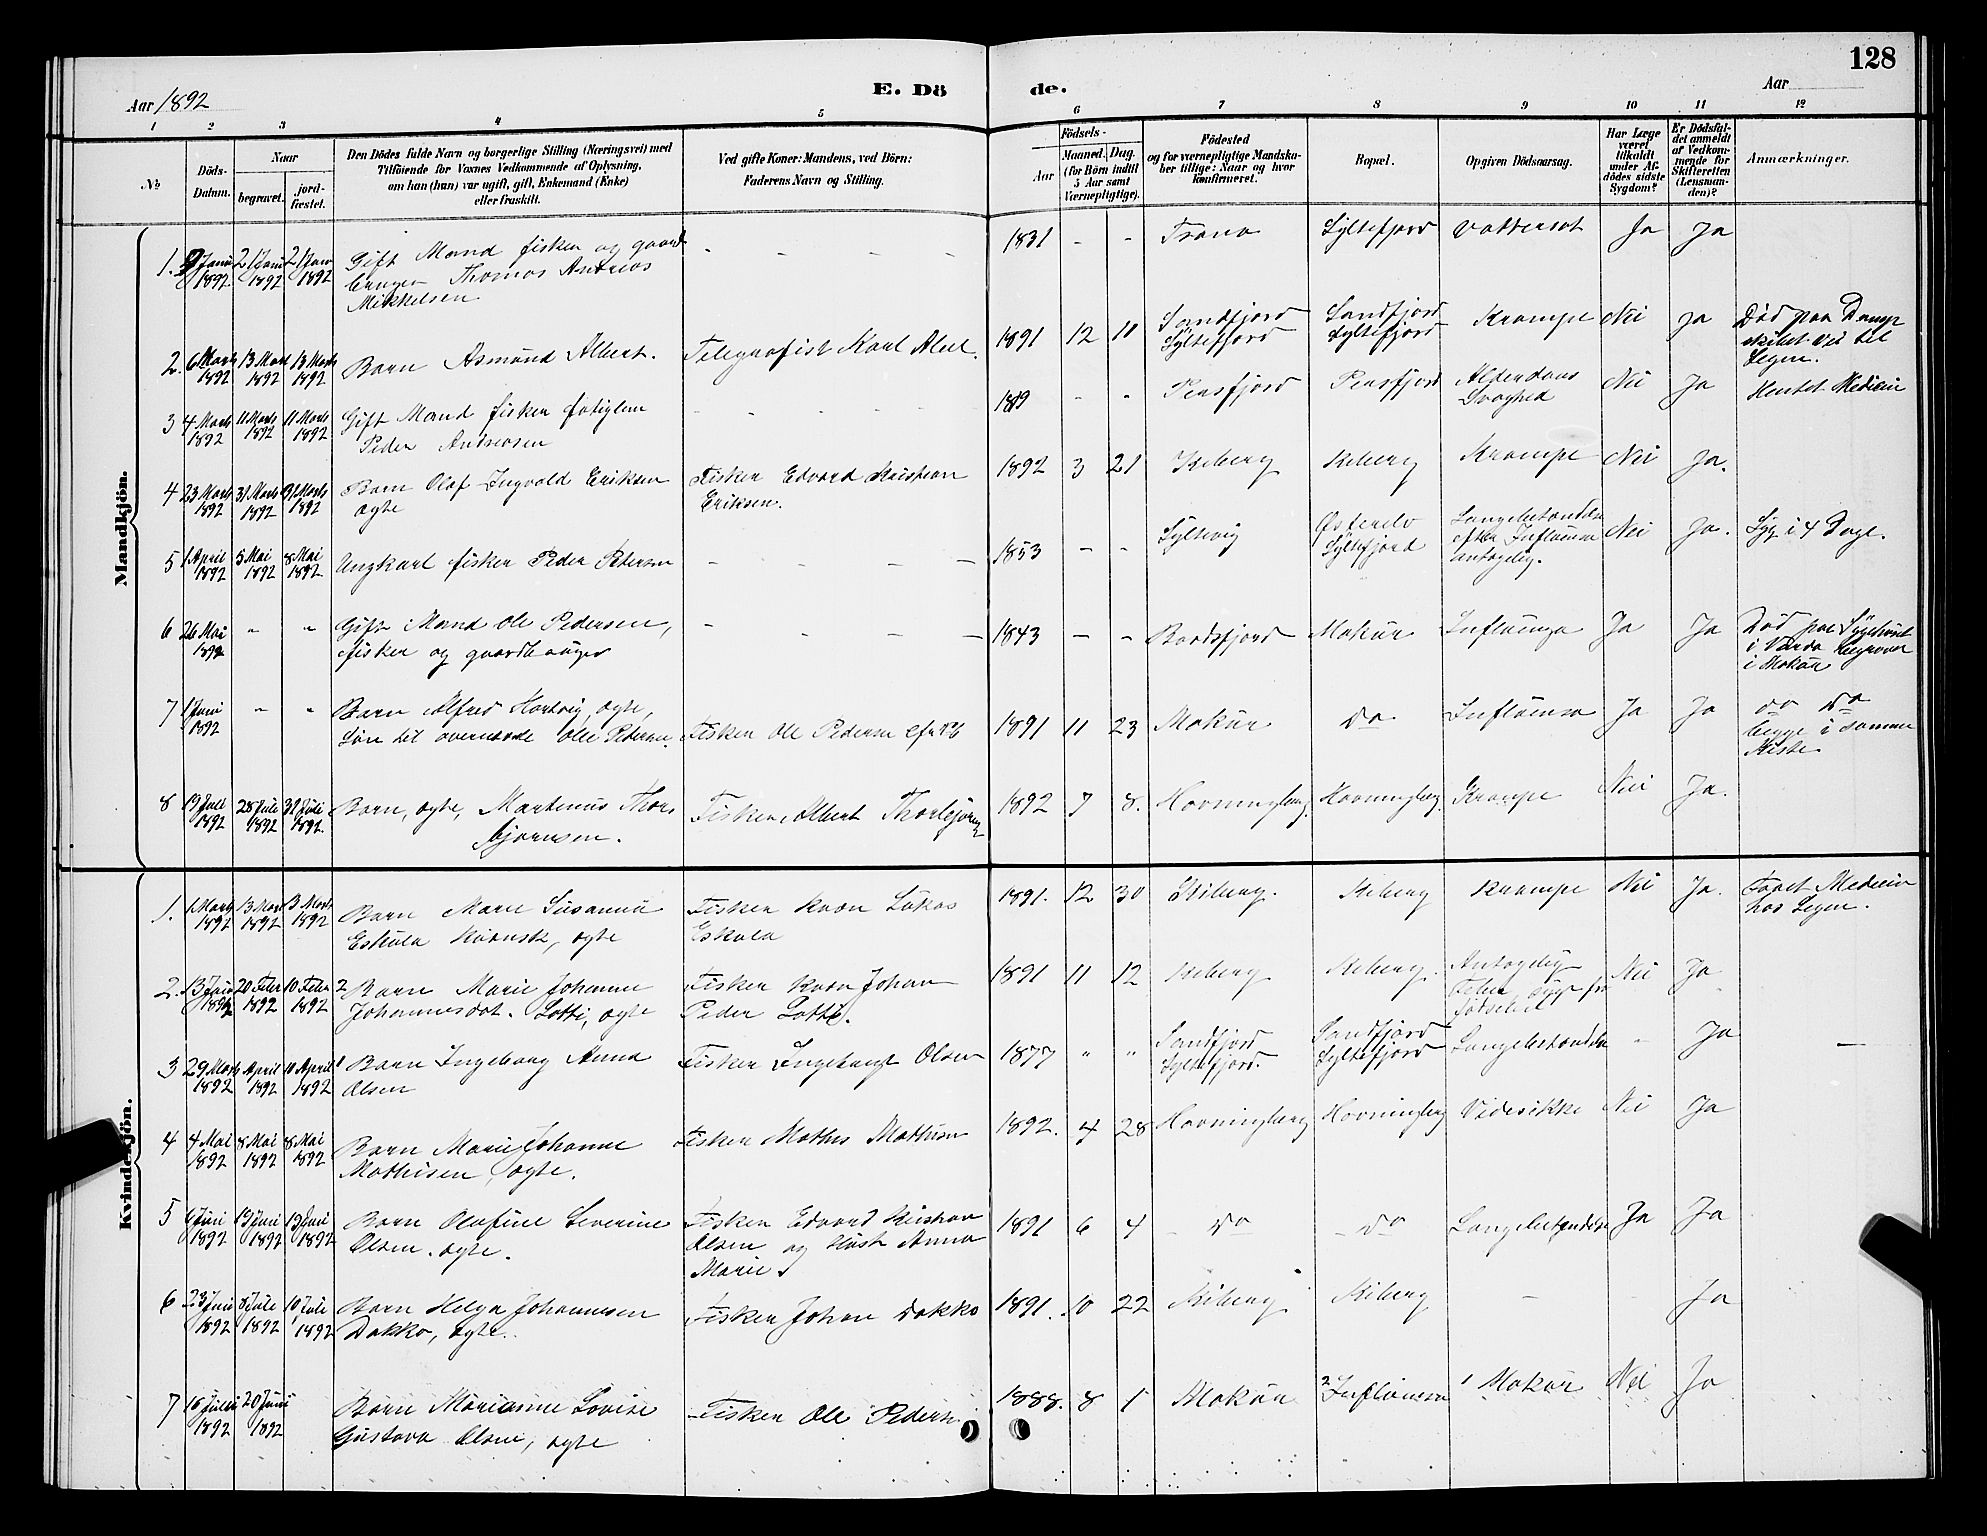 128
Aar 1892
E. Dö
de.
Aar
1 2 3 4 5 6 7 8 9 10 11 12
No
Döds-
Datum.
Naar
begravet.
jord-
fæstet.
Den Dödes fulde Navn og borgerlige Stilling (Næringsvei) med
Tilföiende for Voxnes Vedkommende af Oplysning,
om han (hun) var ugift, gift, Enkemand (Enke)
eller fraskilt.
Ved gifte Koner: Mandens, ved Börn:
Faderens Navn og Stilling.
Födsels-
Aar
Maaned. Dag.
(for Börn indtil
5 Aar samt
Værnepligtige).
Födested
og for værnepligtige Mandska-
ber tillige: Naar og hvor
konfirmeret.
Bopæl.
Opgiven Dödsaarsag.
Har Læge
været
tilkaldt
under Af-
dödes sidste
Sygdom?
Er Dödsfal-
det anmeldt
af Vedkom-
mende for
Skifteretten
(Lensman-
den)?
Anmærkninger.
Mandkjön.
1. 9 Janu 1892 21 Janu 1892 21 Jan 1892 Gift Mand fisker og gaard
bruger Thomas Andreas
Mikkelsen
- - - - 1831 - - Trana Syltefjord Vattersot Ja Ja
2. 6 Marts 1892 13 Mart 1892 13 Marts 1892 Barn Asmund Albert. Telegrafist Karl 1891 12 11 Sandfjord
Syltefjord Sandfjord
Syltefjord Krampe Nei Ja Død paa Damp
skibet ved til
Legen.
3 4 Marts 1892 11 Marts 1892 11 Marts 1892 Gift Mand fisker fatiglem
Peder Andersen
- - - - - - Persfjord Persfjord Alderdoms
Svaghed Nei Ja Hentet Medicin
4 23 Marts 1892 31 Marts 1892 31 Marts 1892 Barn Olaf Ingvald Eriksen
ægte
Fisker Edvard Kristian
Eriksen. 1892 3 21 Kiberg Kiberg Krampe Nei Ja.
5 1 April 1892 8 Mai 1892 8 Mai 1892 Ungkarl fisker Peder Petersen - - - - 1853 - - Syltevig Østerelv
Syltefjord Lungebetændelse
efter Influensa
antagelig. Nei Ja. Syg i 4 Dage.
6 26 Mai 1892 " " Gift Mand Ole Pedersen,
fisker og gaardbruger
- - - - 1843 - - Baadsfjord Makur Influenza Ja Ja Død paa Sygehuset
i Vardø begravet
i Makur
7 1 Juni 1892 " " Barn Alfred Hartvig, ægte,
Søn til overnævnte Ole Pedersen. Fisker Ole Pedersen cfr 6 1891 11 23 Makur Do Influensa Ja Ja do do
begge i samme
Kiste
8 19 Juli 1892 28 Juli 1892 31 Juli 1892. Barn, ægte, Martinus Thor
bjørnsen.
Fisker Albert Thorbjørns 1892 7 8. Havningberg. Havningberg. Krampe Nei Ja.
Kvindekjön.
1. 1 Marts 1892 13 Mart 1892 13 Marts 1892 Barn Marie Susanna
Eskola Kvænsk, ægte
Fisker Kvæn Lukas
Eskola 1891. 12 30 Kiberg. Kiberg Krampe Nei Ja. Faaet Medicin
hos Legen.
2. 13 Janu 1892 20 Febr 1892 10 Febr 1892 2 Barn Marie Johanne
Johannesdat. Lotti, ægte
Fisker Kvæn Johan
Peder Lotti. 1891 11 12 Kiberg Kiberg. Antagelig
Feber syg fra
fødselen Nei Ja
3 29 Marts 1892 April 1892 10 April 1892 1 Barn Ingeborg Anna
Olsen
Fisker Ingebrigt Olsen 1877 " " Sandfjord
Syltefjord. Sandfjord
Syltefjord Lungebetændelse - Ja -
4 4 Mai 1892 8 Mai 1892 8 Mai 1892 Barn Marie Johanne
Mathisen, ægte.
Fisker Mathis Mathisen 1892. 4 28 Havningberg Havningberg Vides ikke Nei Ja
5 Juni 1892 19 Juni 1892 19 Juni 1892 Barn Olafine Severine
Olsen. ægte.
Fisker Edvard Kristian
Olsen og Hust Anna
Marie 1891 6 4 Do Do Lungebetændelse Ja Ja
6 23 Juni 1892 8 Juli 1892 10 Juli 1892 Barn Helga Johannesen
Dakko, ægte.
Fisker Johan Dakko 1891. 10 22 Kiberg Kiberg - - Ja
7 18 Juni 1892 20 Juni 1892 Barn Marianne Lovise
Gustava Olsen, ægte
Fisker Ole Pedersn 1888. 8 1 Makur 2 Influensa 1 Makur Nei Ja